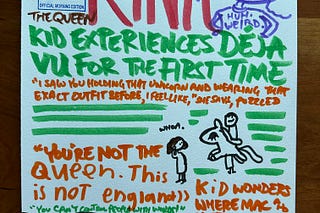 THE QUEEN
HUH.
WEIRD
KID EXPERIENCES DÉJÀ
VU FOR THE FIRST TIME
"I SAW YOU HOLDING THAT UNICORN AND WEARING THAT
EXACT OUTFIT BEFORE, I FEEL LIKE," SHE SAYS, PUZZLED
WHOA.
"YOU'RE NOT THE
QUEEN. THIS
IS NOT ENGLAND"
KID WONDERS
WHERE MAC
"YOU CAN'T CONTROL PEOPLE WITH WANDS!"